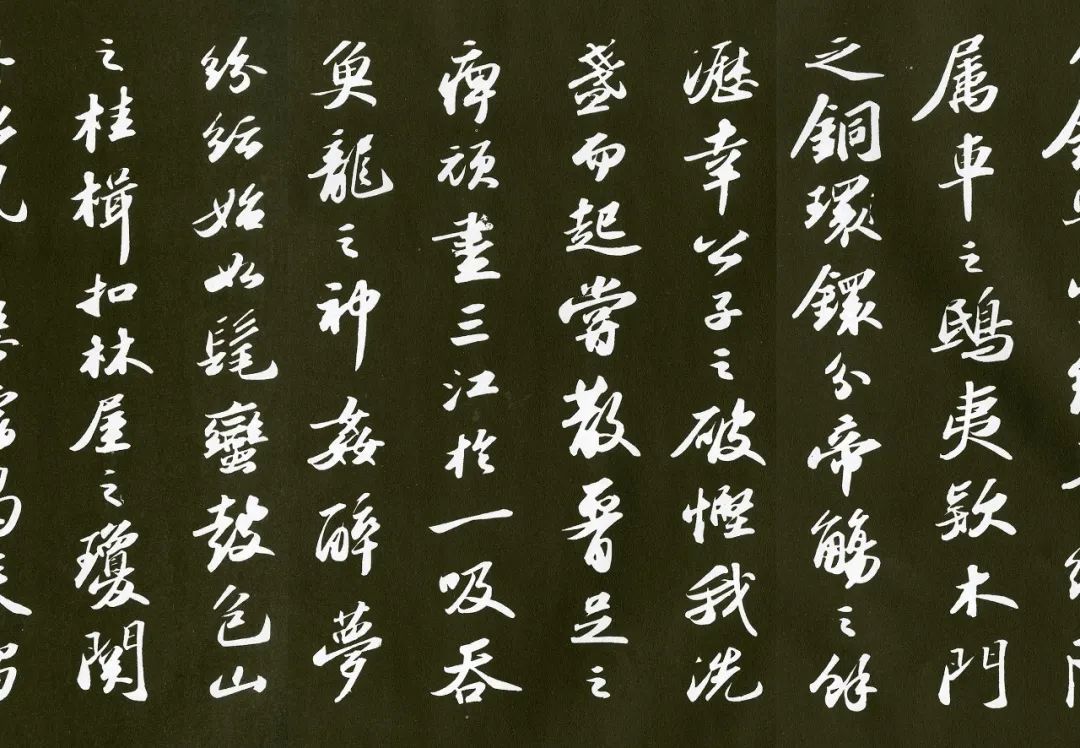 属車之鴟夷欵木門
之銅環鐶分帝觴之餘
瀝幸公子之破慳我洗
盞而起嘗散足之
痺頑盡三江於一吸吞
魚龍之神姦醉夢
紛紜始如髦蠻鼓包山
之桂楫扣林屋之瓊関